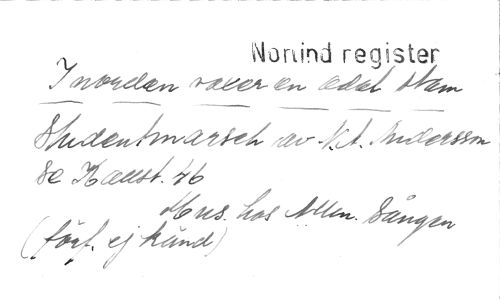 Nonind register
I norden växer en ädel stam
Studentmarsch av V.A. Andersson
Se Kallst. 46
Mus. hos Allm. Sången
(förf. ej känd)